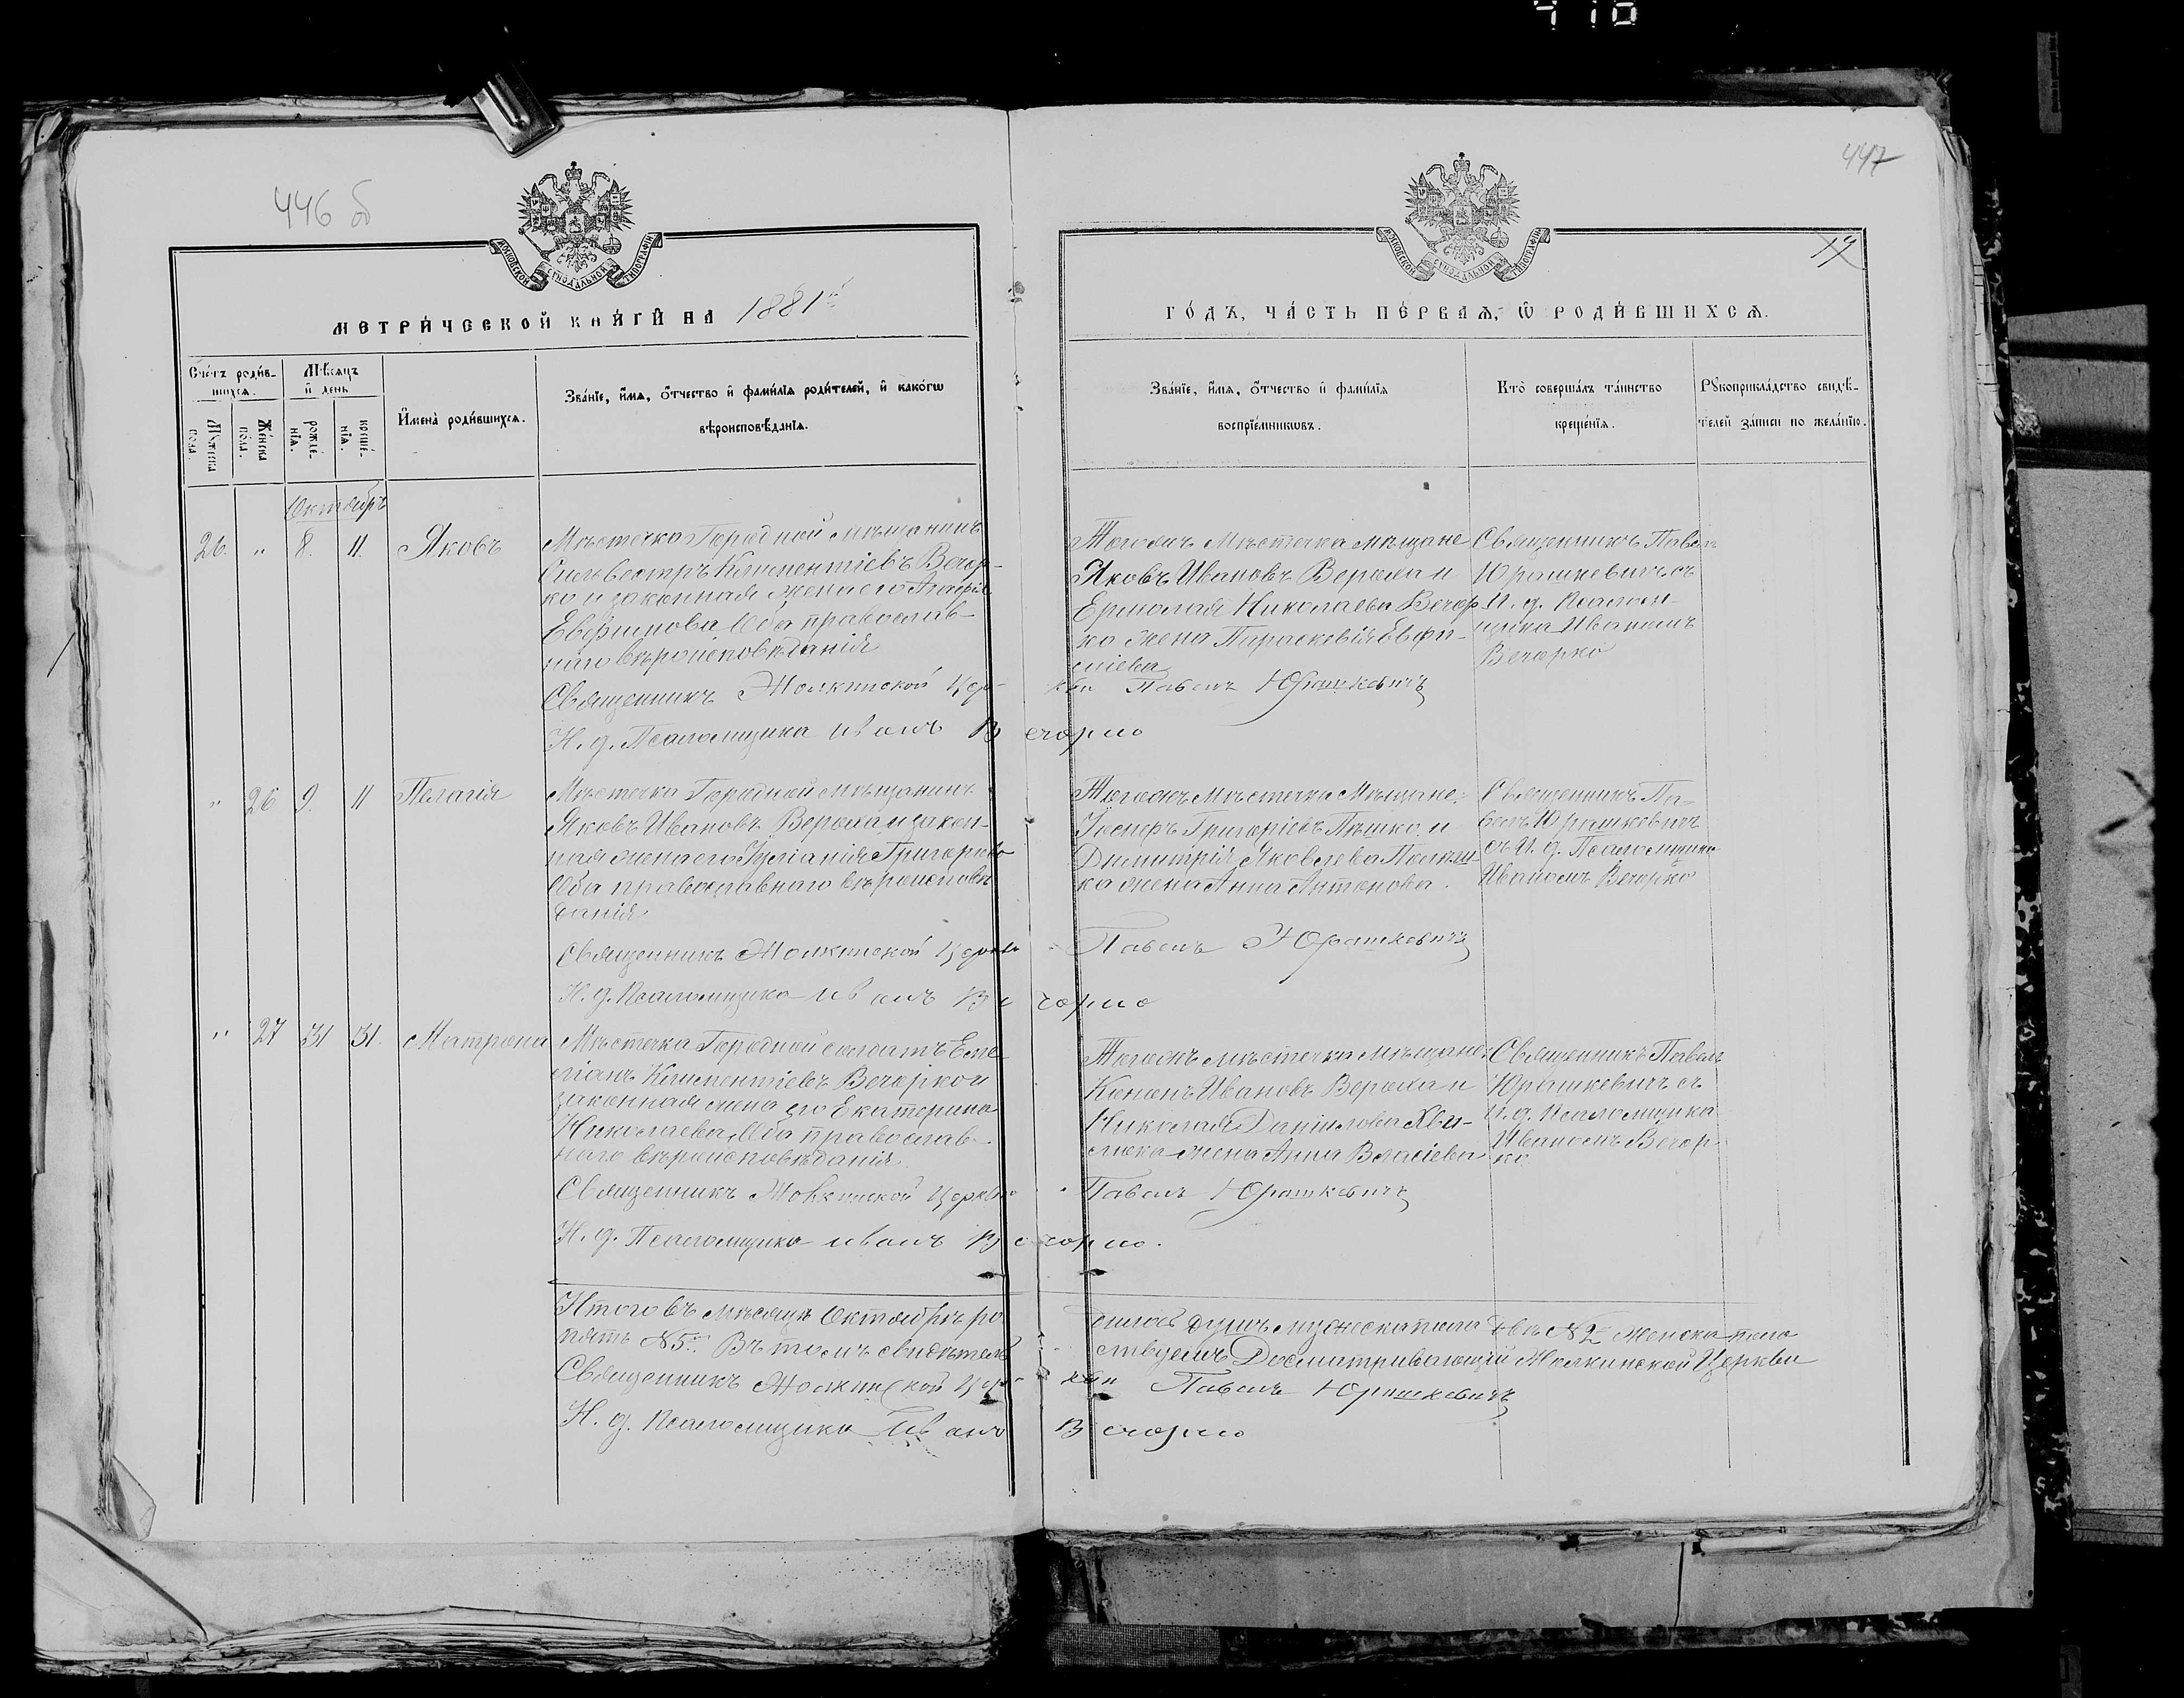 410
446 об
447
19
МОСКОВСКОЙ СѴНОДАЛЬНОЙ ТИПОГРАФІИ
МОСКОВСКОЙ СѴНОДАЛЬНОЙ ТИПОГРАФІИ
МЕТРИ́ЧЕСКОЙ КНИ́ГИ НА 1881й
ГО́ДЪ, ЧА́СТЬ ПЕ́РВАѦ, Ѡ РОДИ́ВШИХСѦ.
Сче́тъ роди́в-
шихсѧ.
Мѣ́сѧцъ
и҆ день
Мꙋ́жеска
пола.
Же́нска
по́ла.
рожде́-
нїѧ.
креще́-
нїѧ.
И҆мена̀ роди́вшихсѧ.
Зва́нїе, и҆́мѧ, ѻ҆́тчество и҆ фами́лїѧ роди́телей, и҆ како́гѡ
вѣроисповѣ́данїѧ.
Зва́нїе, и҆́мѧ, ѻ҆́тчество и҆ фами́лїѧ
воспрїе́мникѡвъ.
Кто̀ соверша́лъ та́инство
креще́нїѧ.
Рꙋкоприкла́дство свидѣ́-
телей за́писи по жела́нїю.
Октябрь
26. „ 8. 11. Яковъ
Мѣстечка Городной мѣщанинъ
Сильвестръ Климентіевъ Вечор-
ко и законная жена его Агафія
Евфимова Оба православ-
наго вѣроисповѣданія
Тогожъ Мѣстечка мѣщане
Яковъ Ивановъ Верема и
Ермолая Николаева Вечор
ко жена Параскевія Евфи-
міева
Священникъ Павелъ
Юрашкевичъ съ
И. д. Псалом-
щика Иваномъ
Вечорко
Священникъ Жолкинской Цер- кви Павелъ Юрашкевичъ
И. д. Псаломщика Иванъ Вечорко
„ 26 9. 11 Пелагія
Мѣстечка Городной мѣщанинъ
Яковъ Ивановъ Верема и закон-
ная жена его Іуліанія Григорьева
Оба православнаго вѣроисповѣ
данія
Тогожъ мѣстечка Мѣщане:
Іосифъ Григоріевъ Пѣшко и
Димитрія Яковлева
ка жена Анна Антонова.
Священникъ Па-
велъ Юрашкевичъ
съ И. д. Псаломщика
Иваномъ Вечорко
Священникъ Жолкинской Церкви Павелъ Юрашкевичъ
И. д. Псаломщика Иванъ Вечорко
„ 27 31 31. Матрона
Мѣстечка Городной солдатъ Еме
ліанъ Климентіевъ Вечорко и
законная жена его Екатерина
Николаева, Оба православ-
наго вѣроисповѣданія
Тогожъ мѣстечка мѣщане:
Кононъ Ивановъ Верема и
Николая Даніилова Хви-
жена Анна Власіева
Священникъ Павелъ
Юрашкевичъ съ
И. д. Псаломщика
Иваномъ Вечор-
ко
Священникъ Жолкинской Церкви Павелъ Юрашкевичъ
И. д. Псаломщика Иванъ Вечорко.
Итого въ мѣсяцѣ Октябрѣ ро дилось душъ мужеска пола двѣ N 2 женска пола
пять N 5. Въ томъ свидѣтель ствуемъ Досматривающій Жолкинской Церкви
Священникъ Жолкинской Цер- кви Павелъ Юрашкевичъ
И. д. Псаломщика Иванъ Вечорко